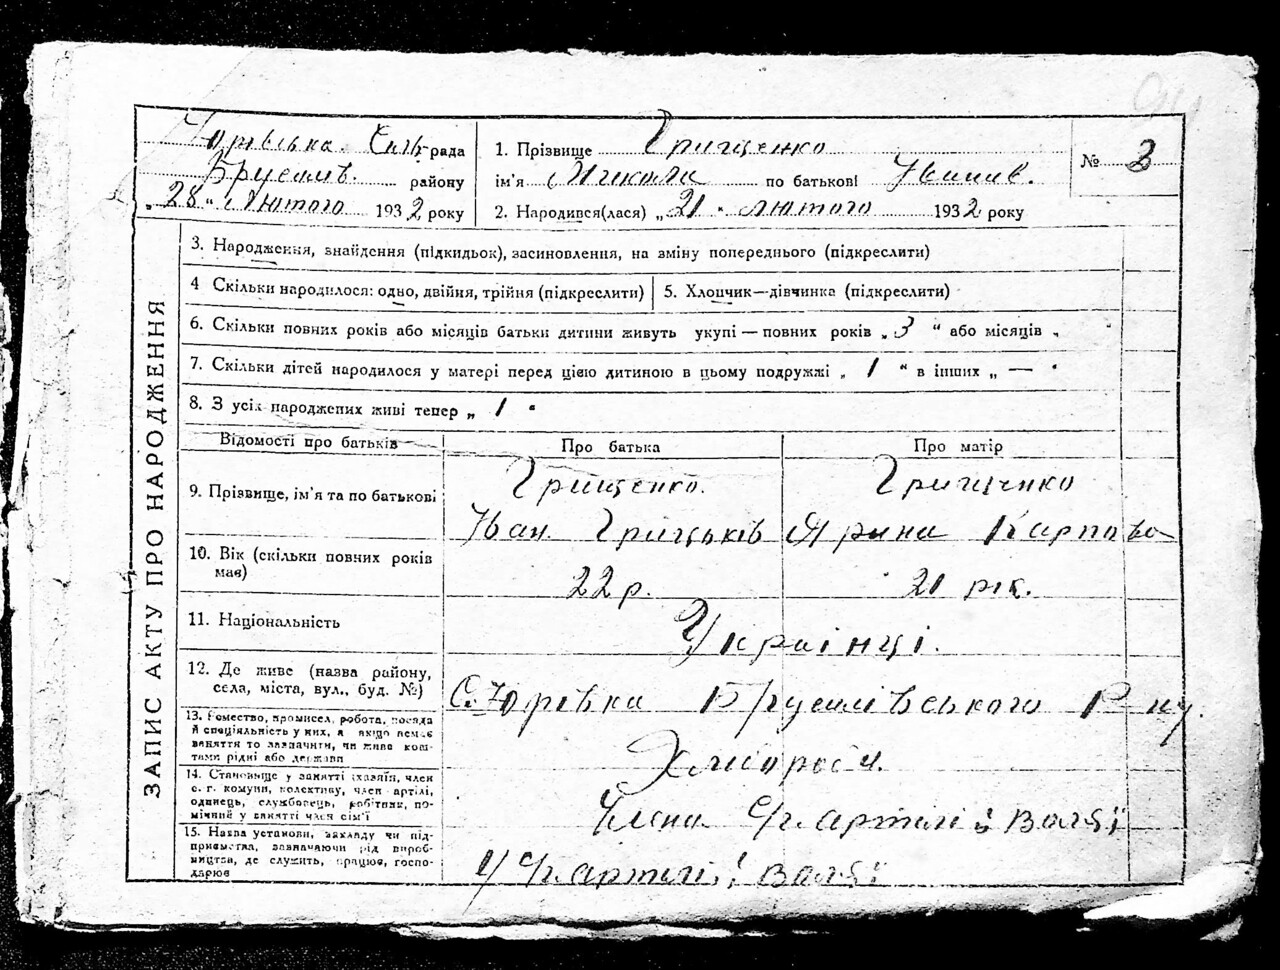 Юрівська Сільрада
Брусилів. району
„28“ Лютого 1932 року
1. Прізвище Грищенко
ім'я Микола по батькові Іванів.
2. Народився(лася) „21“ лютого 1932 року
№ 3
ЗАПИС АКТУ ПРО НАРОДЖЕННЯ
3. Народження, знайдення (підкидьок), засиновлення, на зміну попереднього (підкреслити)
4 Скільки народилося: одно, двійня, трійня (підкреслити) 5. Хлопчик—дівчинка (підкреслити)
6. Скільки повних років або місяців батьки дитини живуть укупі — повних років „3“ або місяців „
7. Скільки дітей народилося у матері перед цією дитиною в цьому подружжі „1“ в інших „—“
8. З усіх народжених живі тепер „1“
Відомості про батьків Про батька Про матір
9. Прізвище, ім'я та по батькові
Грищенко. Грищенко
Іван Грицьків Ярина Карпова
10. Вік (скільки повних років має)
22 р. 21 рік.
11. Національність
Українці.
12. Де живе (назва району,
села, міста, вул., буд. №)
С. Юрівка Брусилівського Р-ну.
13. Ремество, промисел, робота, посада
й спеціяльність у них, а якщо немає
заняття то зазначити, чи живе кош-
тами рідні або держави
Хлібороби.
14. Становище у занятті (хазяїн, член
с. г. комуни, колективу, член артілі,
одинець, службовець, робітник, по-
мічний у занятті член сім'ї
Члена С/г артілі
15. Назва установи, закладу чи під-
приємства, зазначаючи рід вироб-
ництва, де служить, працює, госпо-
дарює
У С/г артілі